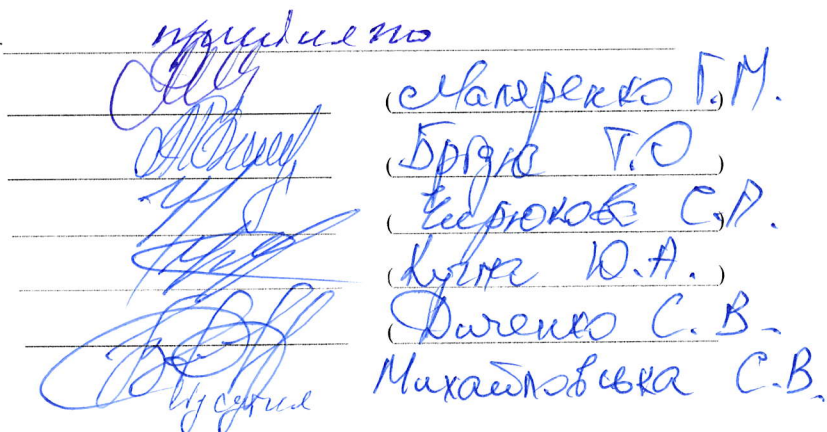 прийнято
(Маляренко Г.М.)
(Бридня Т.О)
(Бирюкова С.П.)
(Кузна Ю.А.)
(Дяченко С.В.)
Михайловська С.В.